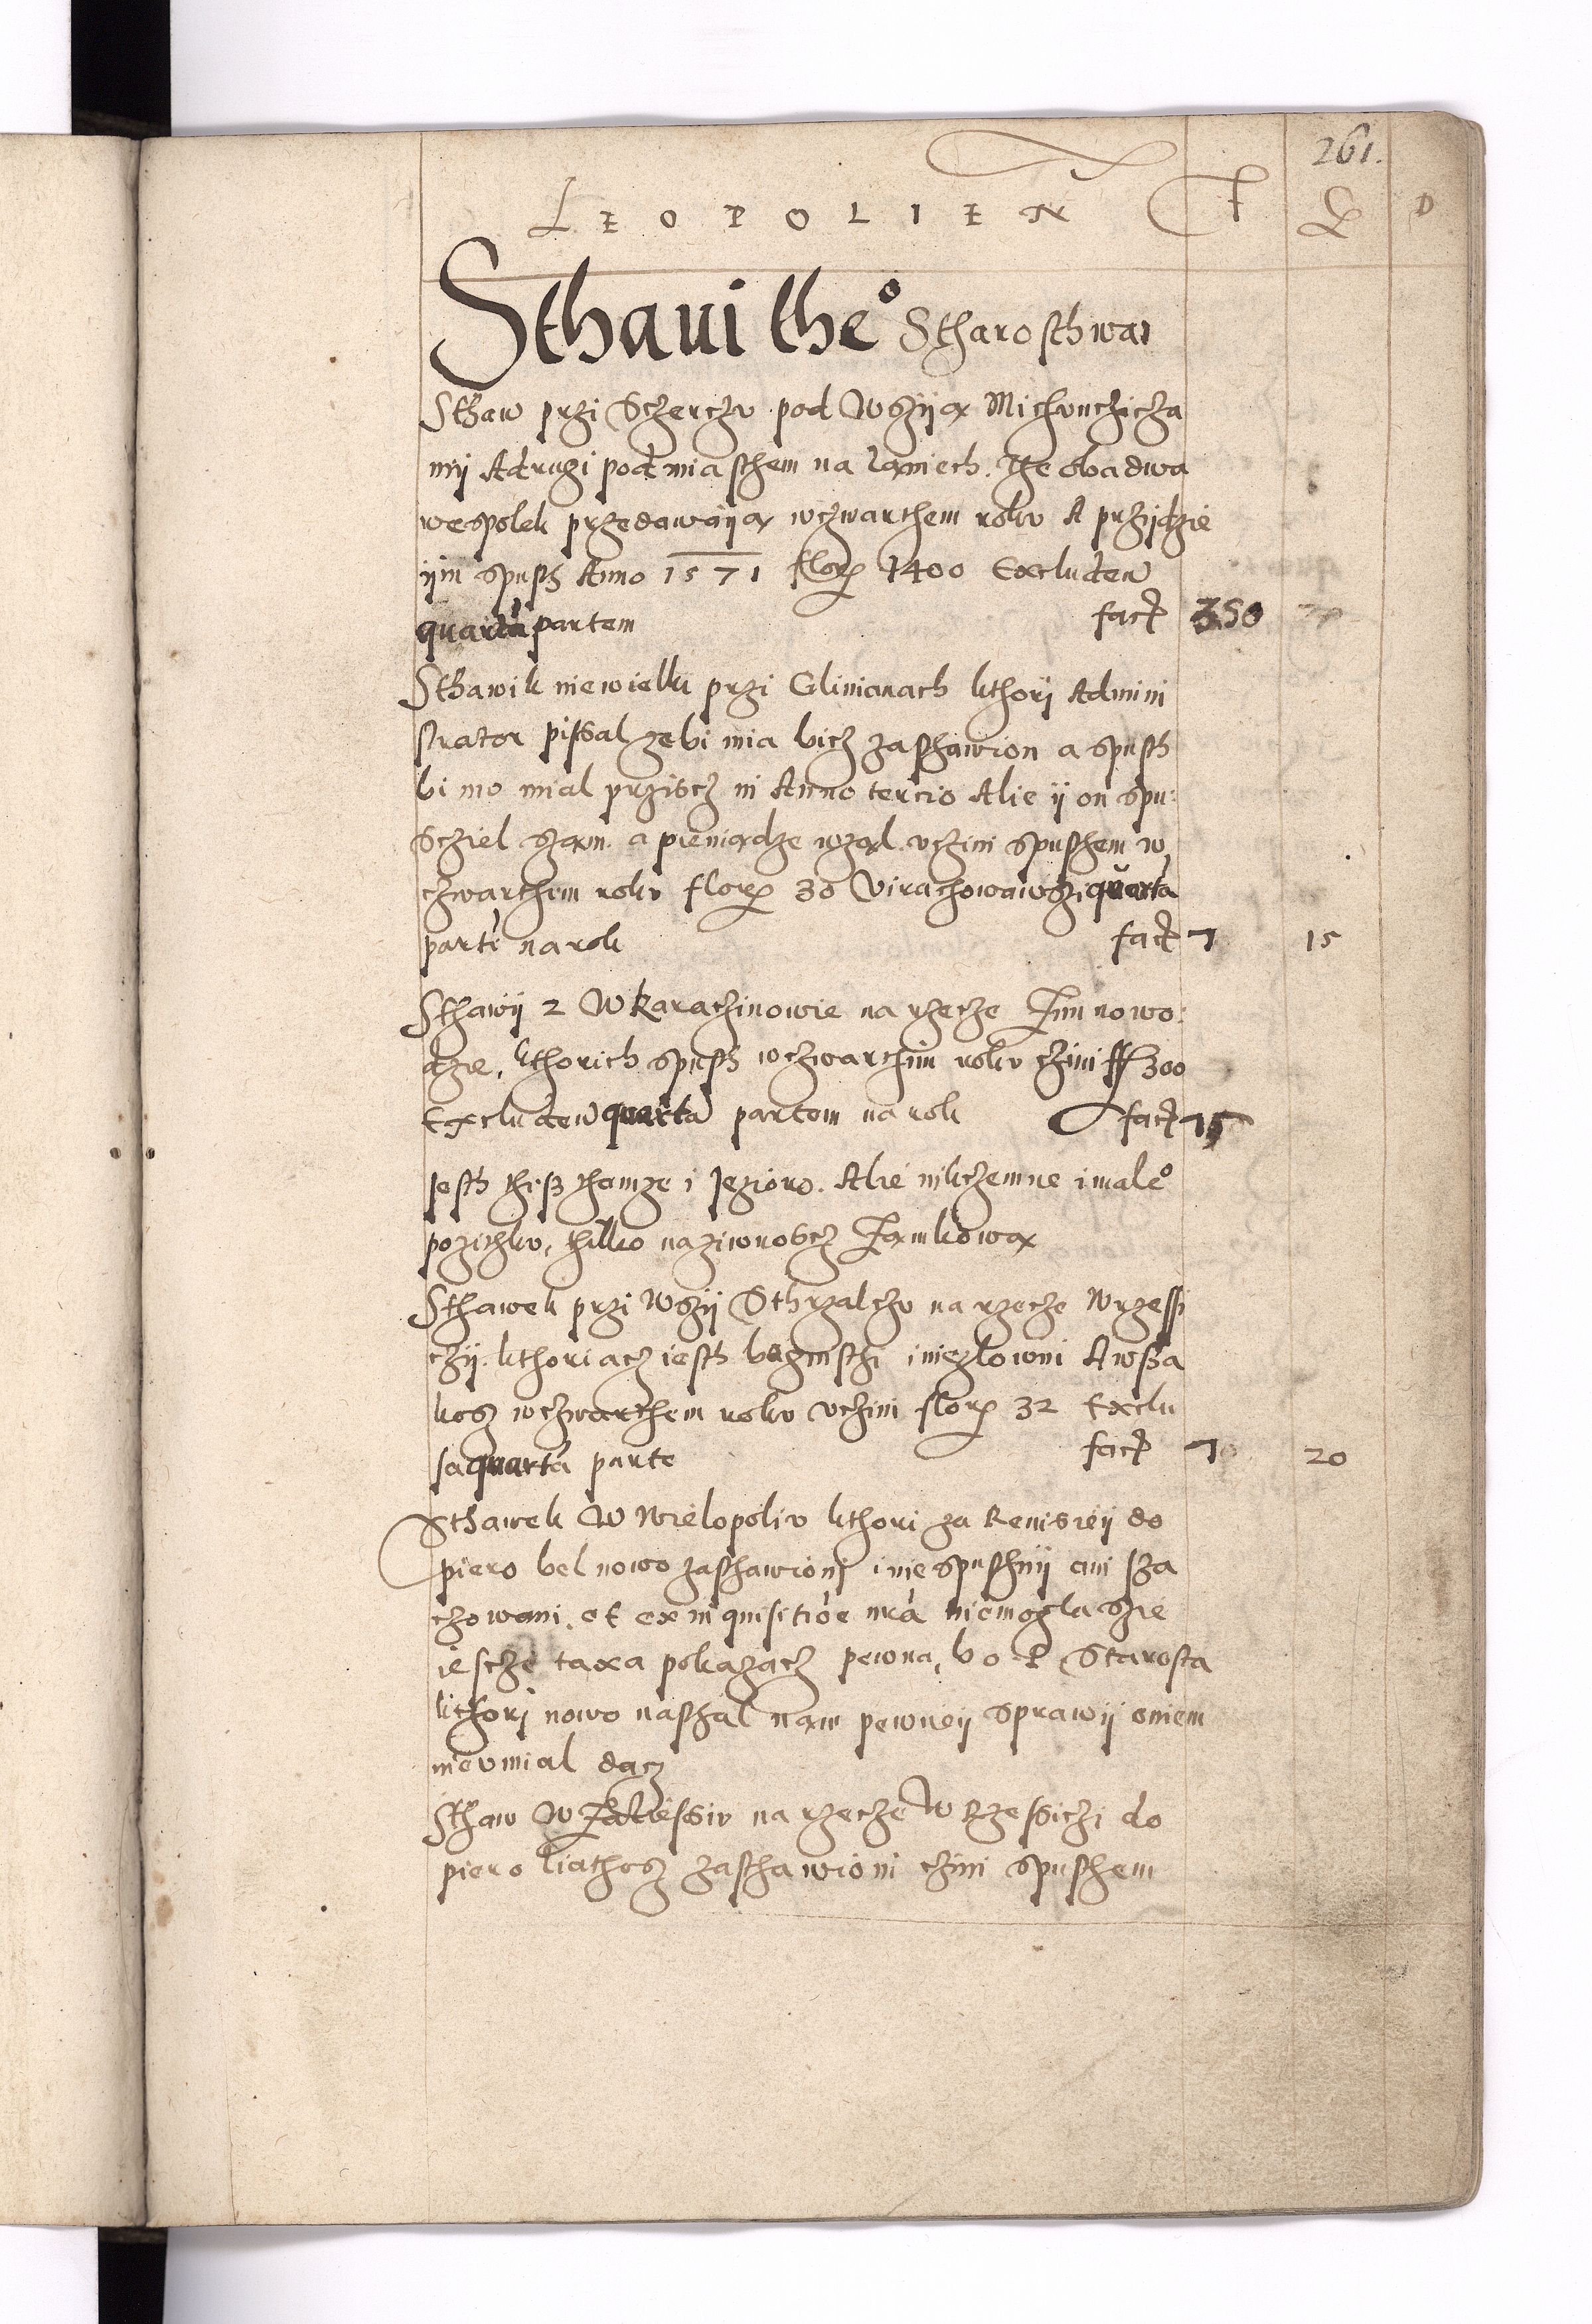 261.
LEOPOLIEN F G D
Sthaui the° Stharosthwaı
Sthaw przi Sczerczv pod Wsziją Michunczicza
mij A drugi pod miasthem na ląniech. Ize obadwa
wespolek przedawaiją wczwarthem rokv A przijdzie
ijm spusth Anno 1571 flor 1400 Excludeń
quartā partem fact 350
Sthawik niewielki przi Glinianach kthorij Admini
strator pissal zebi mia bicz zasthawion a spusth
bi mo mial przioscz in Anno tercio Alie ij on spu:
scziel szam. a pieniądze wzął. vczini spusthem w
czwarthem rokv flor 30 Virachowawszi quarta
parte na rok fact 7 15
Sthawij 2 W Karaczinowie na rzecze Zimnowo:
dzie, kthorich spusth wczwarthim rokv czini ff 300
Excludeń quartā partem na rok fact 75
Jesth thesz thamze i Jezioro. Alie nikczemne i male°
pozithkv, thilko na ziwnoscz Zamkową
Sthawek przi Wszij Sthrzalczv na rzecze Wrzessi
czij. kthori acz iesth bagnisthi i niezlowni A wsza
kosz wczwarthem rokv vczini flor 32 Exclu
sa quarta parte fact 7 20
Sthawek W Wielopoliv kthori za Revisieij do
piero bel nowo zasthawionij i niespusthnij ani sza
czowani. et ex inquisitiōe nrā niemogla szie
iescze taxa pokazacz pewna, bo P Starosta
kthorj nowo nasthal nam pewneij sprawij oniem
nieumial dacz
Sthaw W Zaliessiv na rzecze Wrzessiczi do
piero liathosz zasthawioni czini spusthem